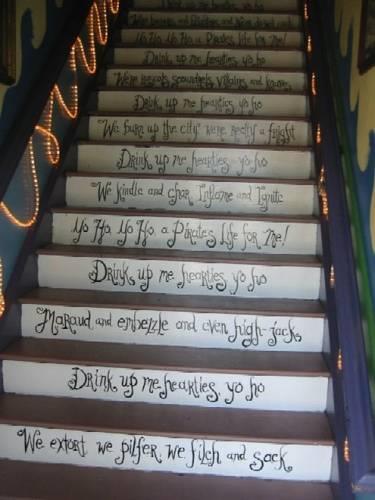 Drink up me hearties yo ho
We're beggars and blighters and ne'er do well cads
Yo Ho, Yo Ho, a Pirates life for me!
Drink up me hearties yo ho
We're rascals scoundrels villains and knaves
Drink up me hearties yo ho
We burn up the city were really a fright
Drink up me hearties yo ho
We kindle and char Inflame and Ignite
Yo Ho, Yo Ho, a Pirates Life for Me!
Drink up me hearties, yo ho
Maraud and embezzle and even high-jack
Drink up me hearties, yo ho
We extort we pilfer, we filch and sack